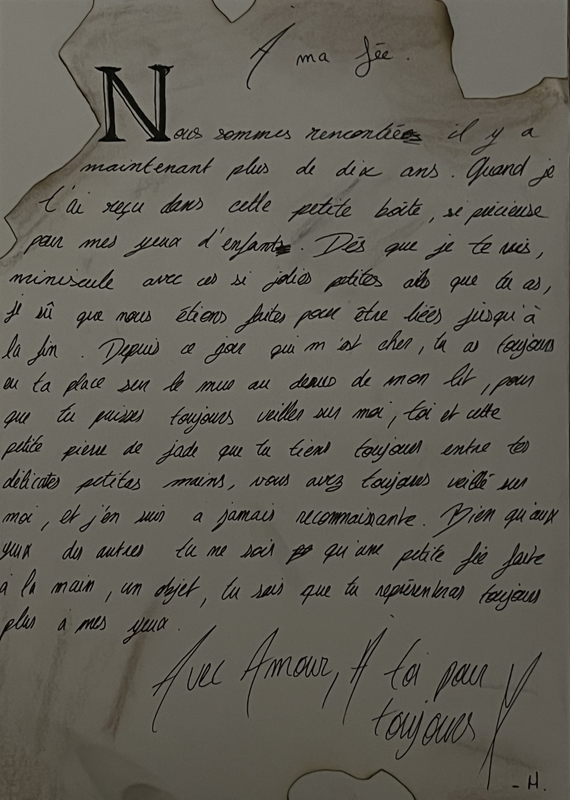 A ma fée.
Nous sommes rencontrées il y a
maintenant plus de dix ans. Quand je
t'ai reçu dans cette petite boîte, si précieuse
pour mes yeux d'enfant. Dés que je te vois,
miniscule avec ces si jolies petites ails que tu as,
je sû que nous étions faites pour être liées jusqu'à
la fin. Depuis ce jour qui m'est cher, tu as toujours
eu ta place sur le mur au dessus de mon lit, pour
que tu puisses toujours veiller sur moi, toi et cette
petite pierre de jade que tu tiens toujours entre tes
délicates petites mains, vous avez toujours veillé sur
moi, et j'en suis a jamais reconnaissante. Bien qu'aux
yeux des autres tu ne sois qu'une petite fée faite
à la main, un objet, tu sais que tu représenteras toujours
plus a mes yeux.
Avec Amour, A toi pour
toujours
- H.